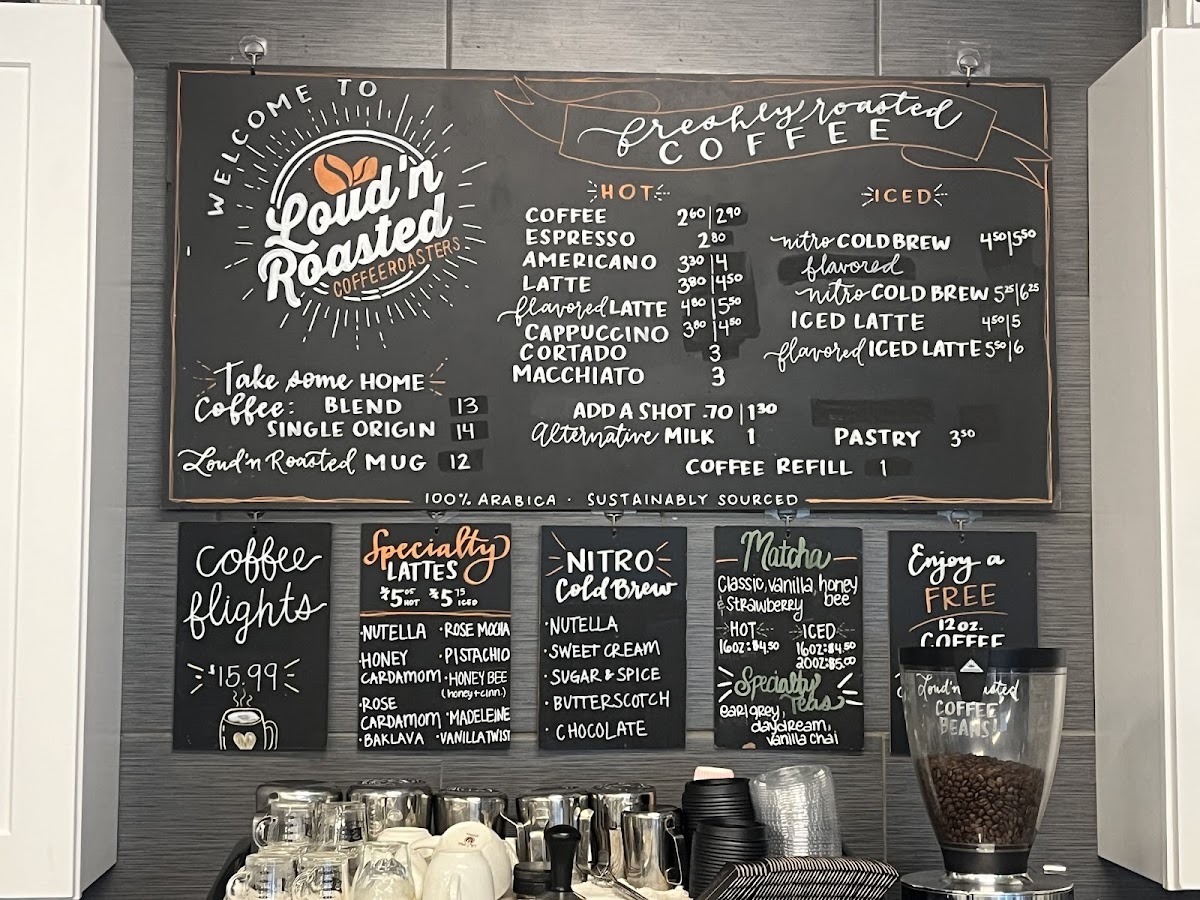 WELCOME TO
Loud'n
Roasted
COFFEEROASTERS
Take some HOME
Coffee: BLEND 13
SINGLE ORIGIN 14
Loud'n Roasted MUG 12
freshly roasted
COFFEE
HOT
COFFEE 2.60 | 2.90
ESPRESSO 2.80
AMERICANO 3.30 | 4
LATTE 3.80 | 4.50
flavored LATTE 4.80 | 5.50
CAPPUCCINO 3.80 | 4.50
CORTADO 3
MACCHIATO 3
ICED
nitro COLD BREW 4.50 | 5.50
flavored
nitro COLD BREW 5.25 | 6.25
ICED LATTE 4.50 | 5
flavored ICED LATTE 5.50 | 6
ADD A SHOT .70 | 1.30
Alternative MILK 1
PASTRY 3.50
COFFEE REFILL 1
100% ARABICA · SUSTAINABLY SOURCED
coffee
flights
$15.99
Specialty
LATTES
$5 HOT $5.75 ICED
·NUTELLA ·ROSE MOCHA
·HONEY CARDAMOM ·PISTACHIO
·HONEY BEE
(honey+cinn.)
·ROSE CARDAMOM ·MADELEINE
·BAKLAVA ·VANILLA TWIST
NITRO
Cold Brew
·NUTELLA
·SWEET CREAM
·SUGAR & SPICE
·BUTTERSCOTCH
·CHOCOLATE
Matcha
Classic, vanilla, honey bee
& Strawberry
HOT ICED
16oz: $4.50 16oz: $4.50
20oz: $5.00
Specialty
Teas
earl grey,
daydream,
vanilla chai
Enjoy a
FREE
12 oz.
COFFEE
Loud'n Roasted
COFFEE
BEANS!